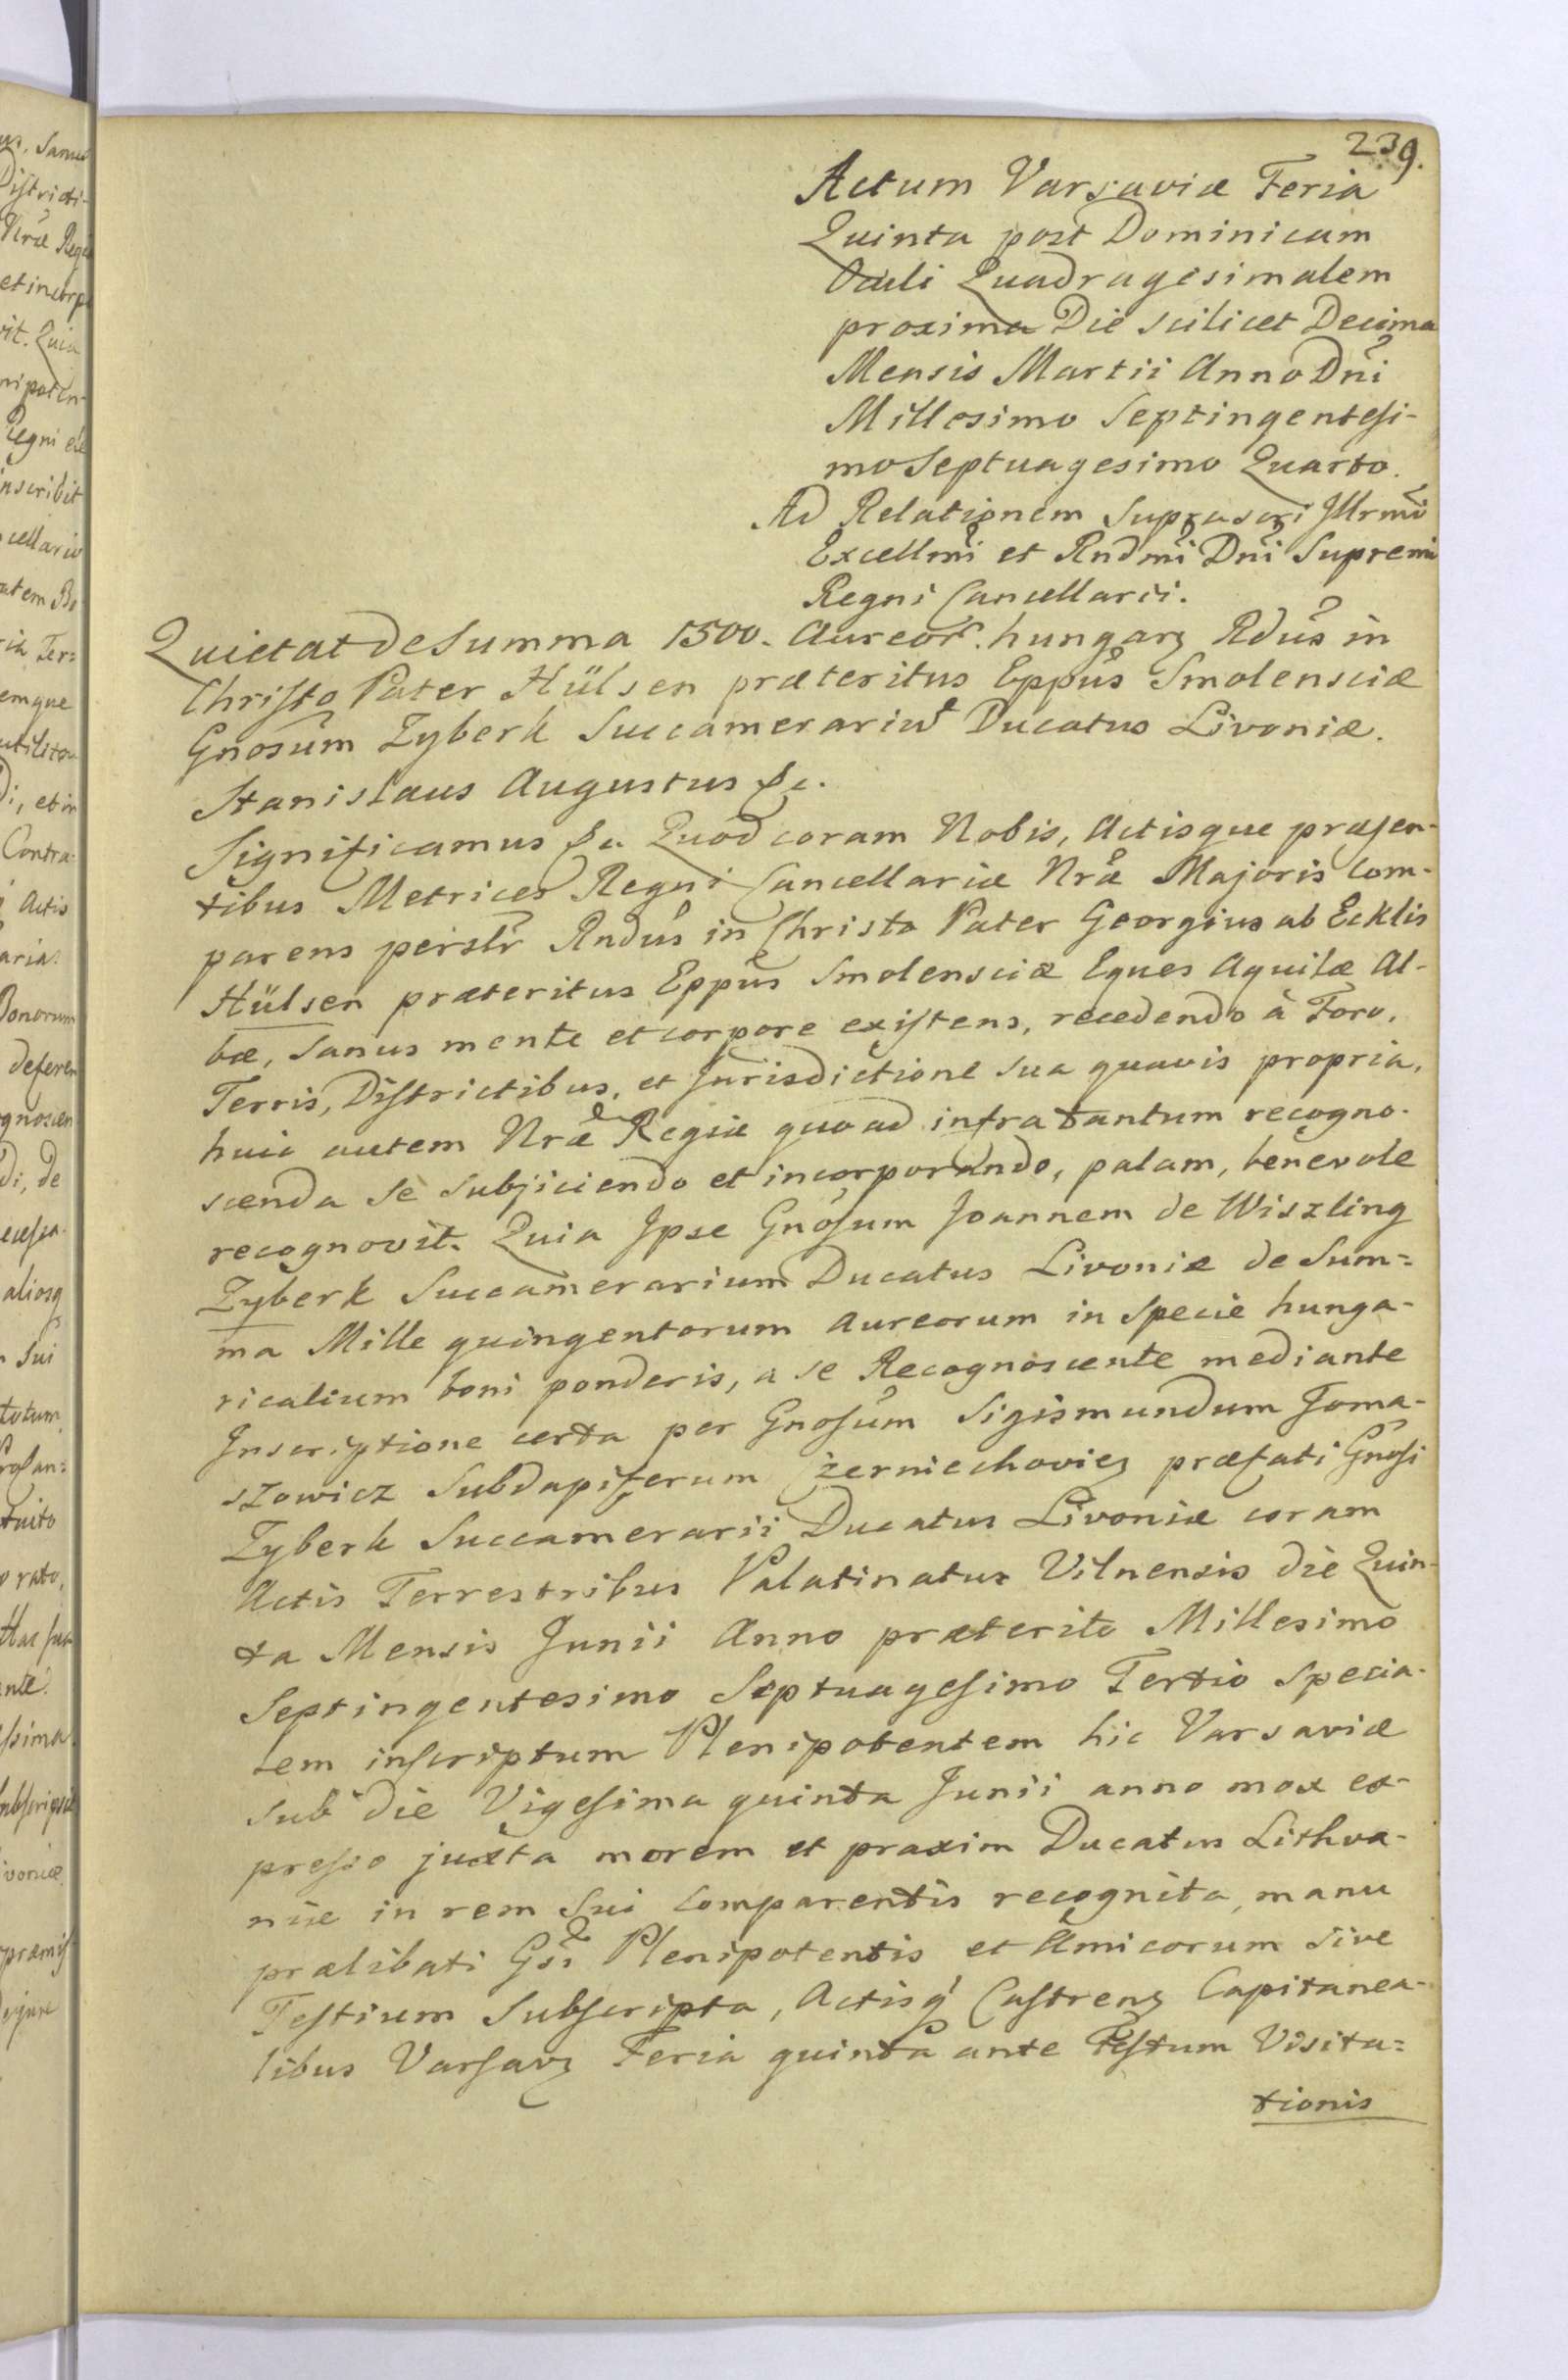 239.
Actum Varsaviæ Feria
Quinta post Dominicam
Oculi Quadragesimalem
proxima Die scilicet Decima
Mensis Martii Anno Dni
Millesimo Septingentesi-
mo Septuagesimo Quarto.
Ad Relationem Suprascri Illrmi
Excellmi et Rndmi Dni Supremi
Regni Cancellarii.
Quietat de Summa 1500. Aureor. hungarz Rdus in
Christo Pater Hülsen præteritus Eppus Smolensciæ
Gnosum Zyberk Succamerariu Ducatus Livoniæ.
Stanislaus Augustus &c.
Significamus &c. Quod coram Nobis, Actisque præsen-
tibus Metrices Regni Cancellariæ Nræ Majoris Com-
parens perslr Rndus in Christo Pater Georgius ab Ecklis
Hülsen præteritus Eppus Smolensciæ Eques Aquilæ Al-
bæ, Sanus mente et corpore existens, recedendo à Foro,
Terris, Districtibus, et Jurisdictione sua quavis propria,
huic autem Nræ Regiæ quoad infra tantum recogno-
scenda se subjiciendo et incorporando, palam, benevole
recognovit. Quia Ipse Gnosum Joannem de Wiszling
Zyberk Succamerarium Ducatus Livoniæ de Sum=
ma Mille quingentorum Aureorum in specie hunga-
ricalium boni ponderis, a se Recognoscente mediante
Inscriptione certa per Gnosum Sigismundum Toma-
szowicz Subdapiferum Czerniechoviez præfati Gnosi
Zyberk Succamerarii Ducatus Livoniæ coram
Actis Terrestribus Palatinatus Vilnensis die Quin-
ta Mensis Junii Anno præterito Millesimo
Septingentesimo Septuagesimo Tertio specia-
lem inscriptum Plenipotentem hic Varsaviæ
sub die Vigesima quinta Junii anno mox ex-
presso juxta morem et praxim Ducatus Lithva-
niæ in rem sui Comparentis recognita, manu
prælibati Gsi Plenipotentis et Amicorum sive
Testium Subscripta, Actisq Castrenz Capitanea-
libus Varsavz Feria quinta ante Festum Visita=
tionis